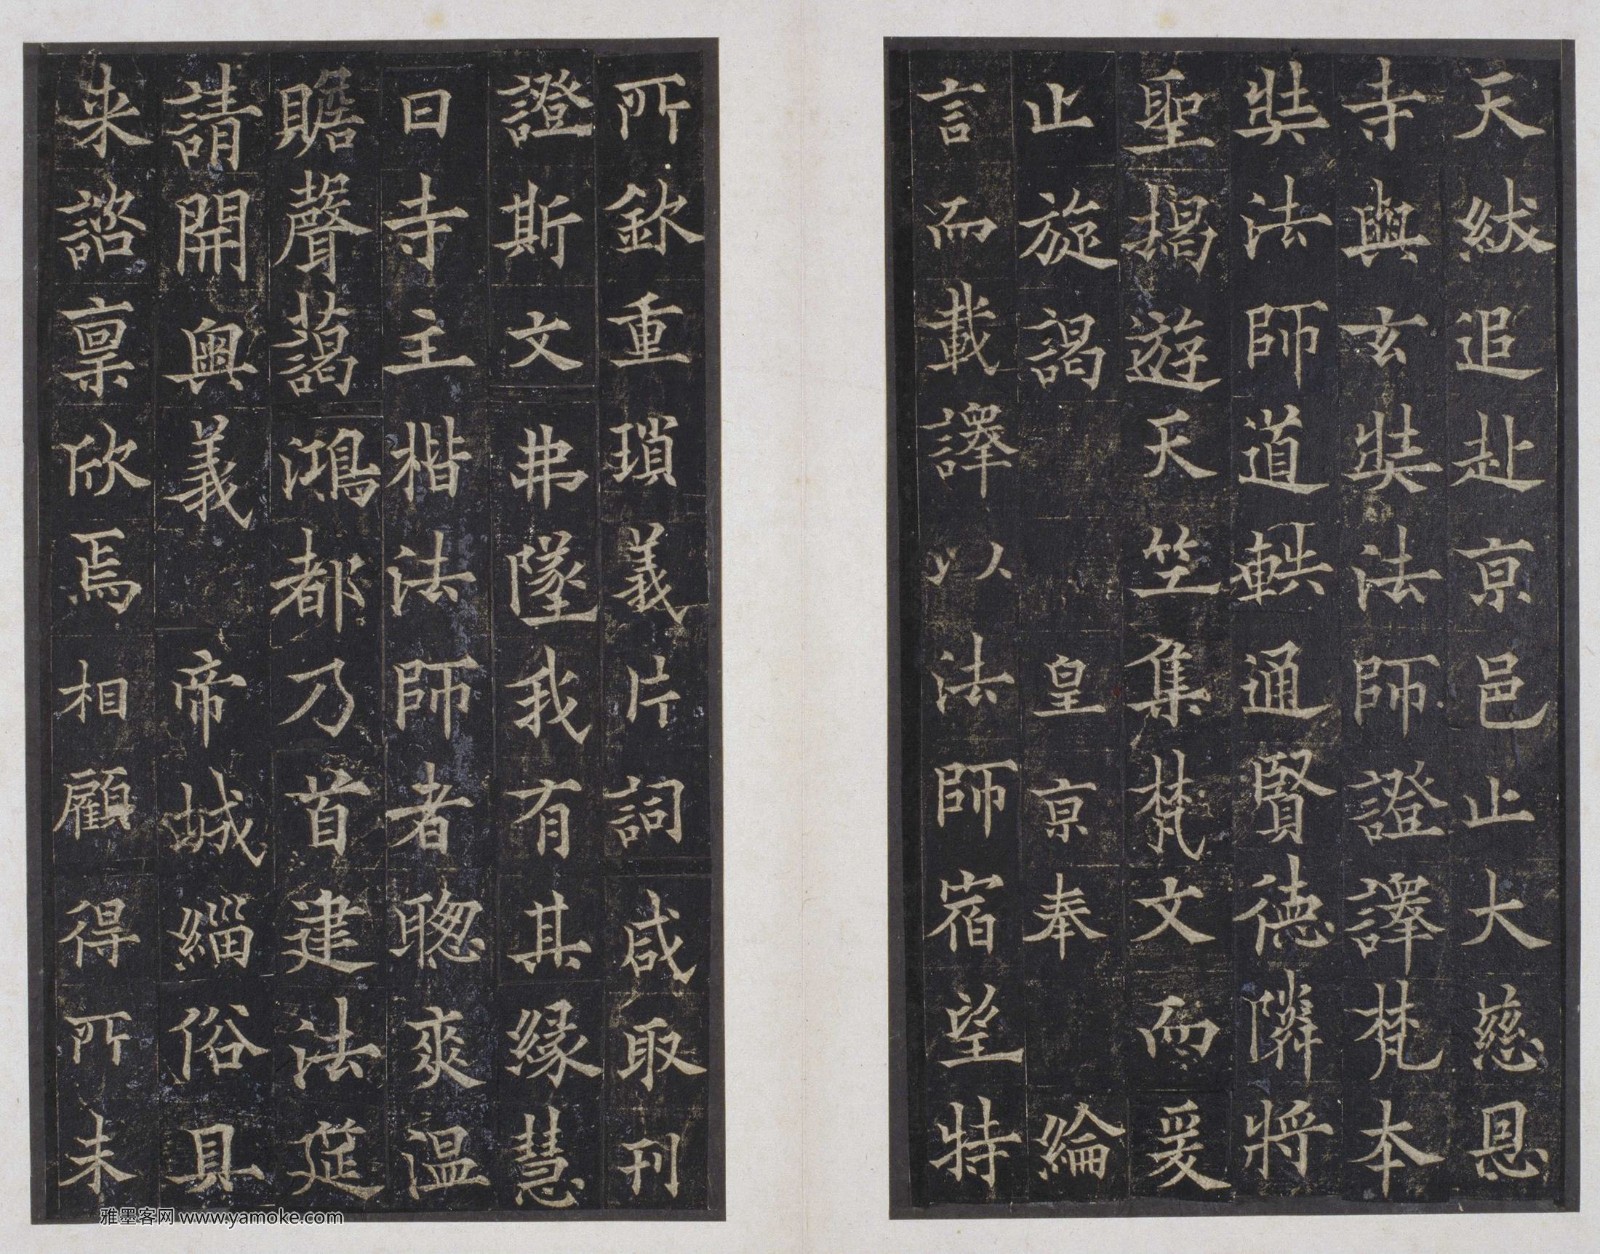 天紱追赴京邑止大慈恩
寺與玄奘法師證譯梵本
奘法師道軼通賢德隣將
聖揭遊天竺集梵文而爰
止旋謁皇京奉綸
言而載譯以法師宿望特
所欽重瑣義片詞咸取刊
證斯文弗墜我有其緣慧
日寺主楷法師者聰爽温
贍聲藹鴻都乃首建法筵
請開奧義帝城緇俗具
來諮禀欣焉相顧得所未
雅墨客网 www.yamoke.com